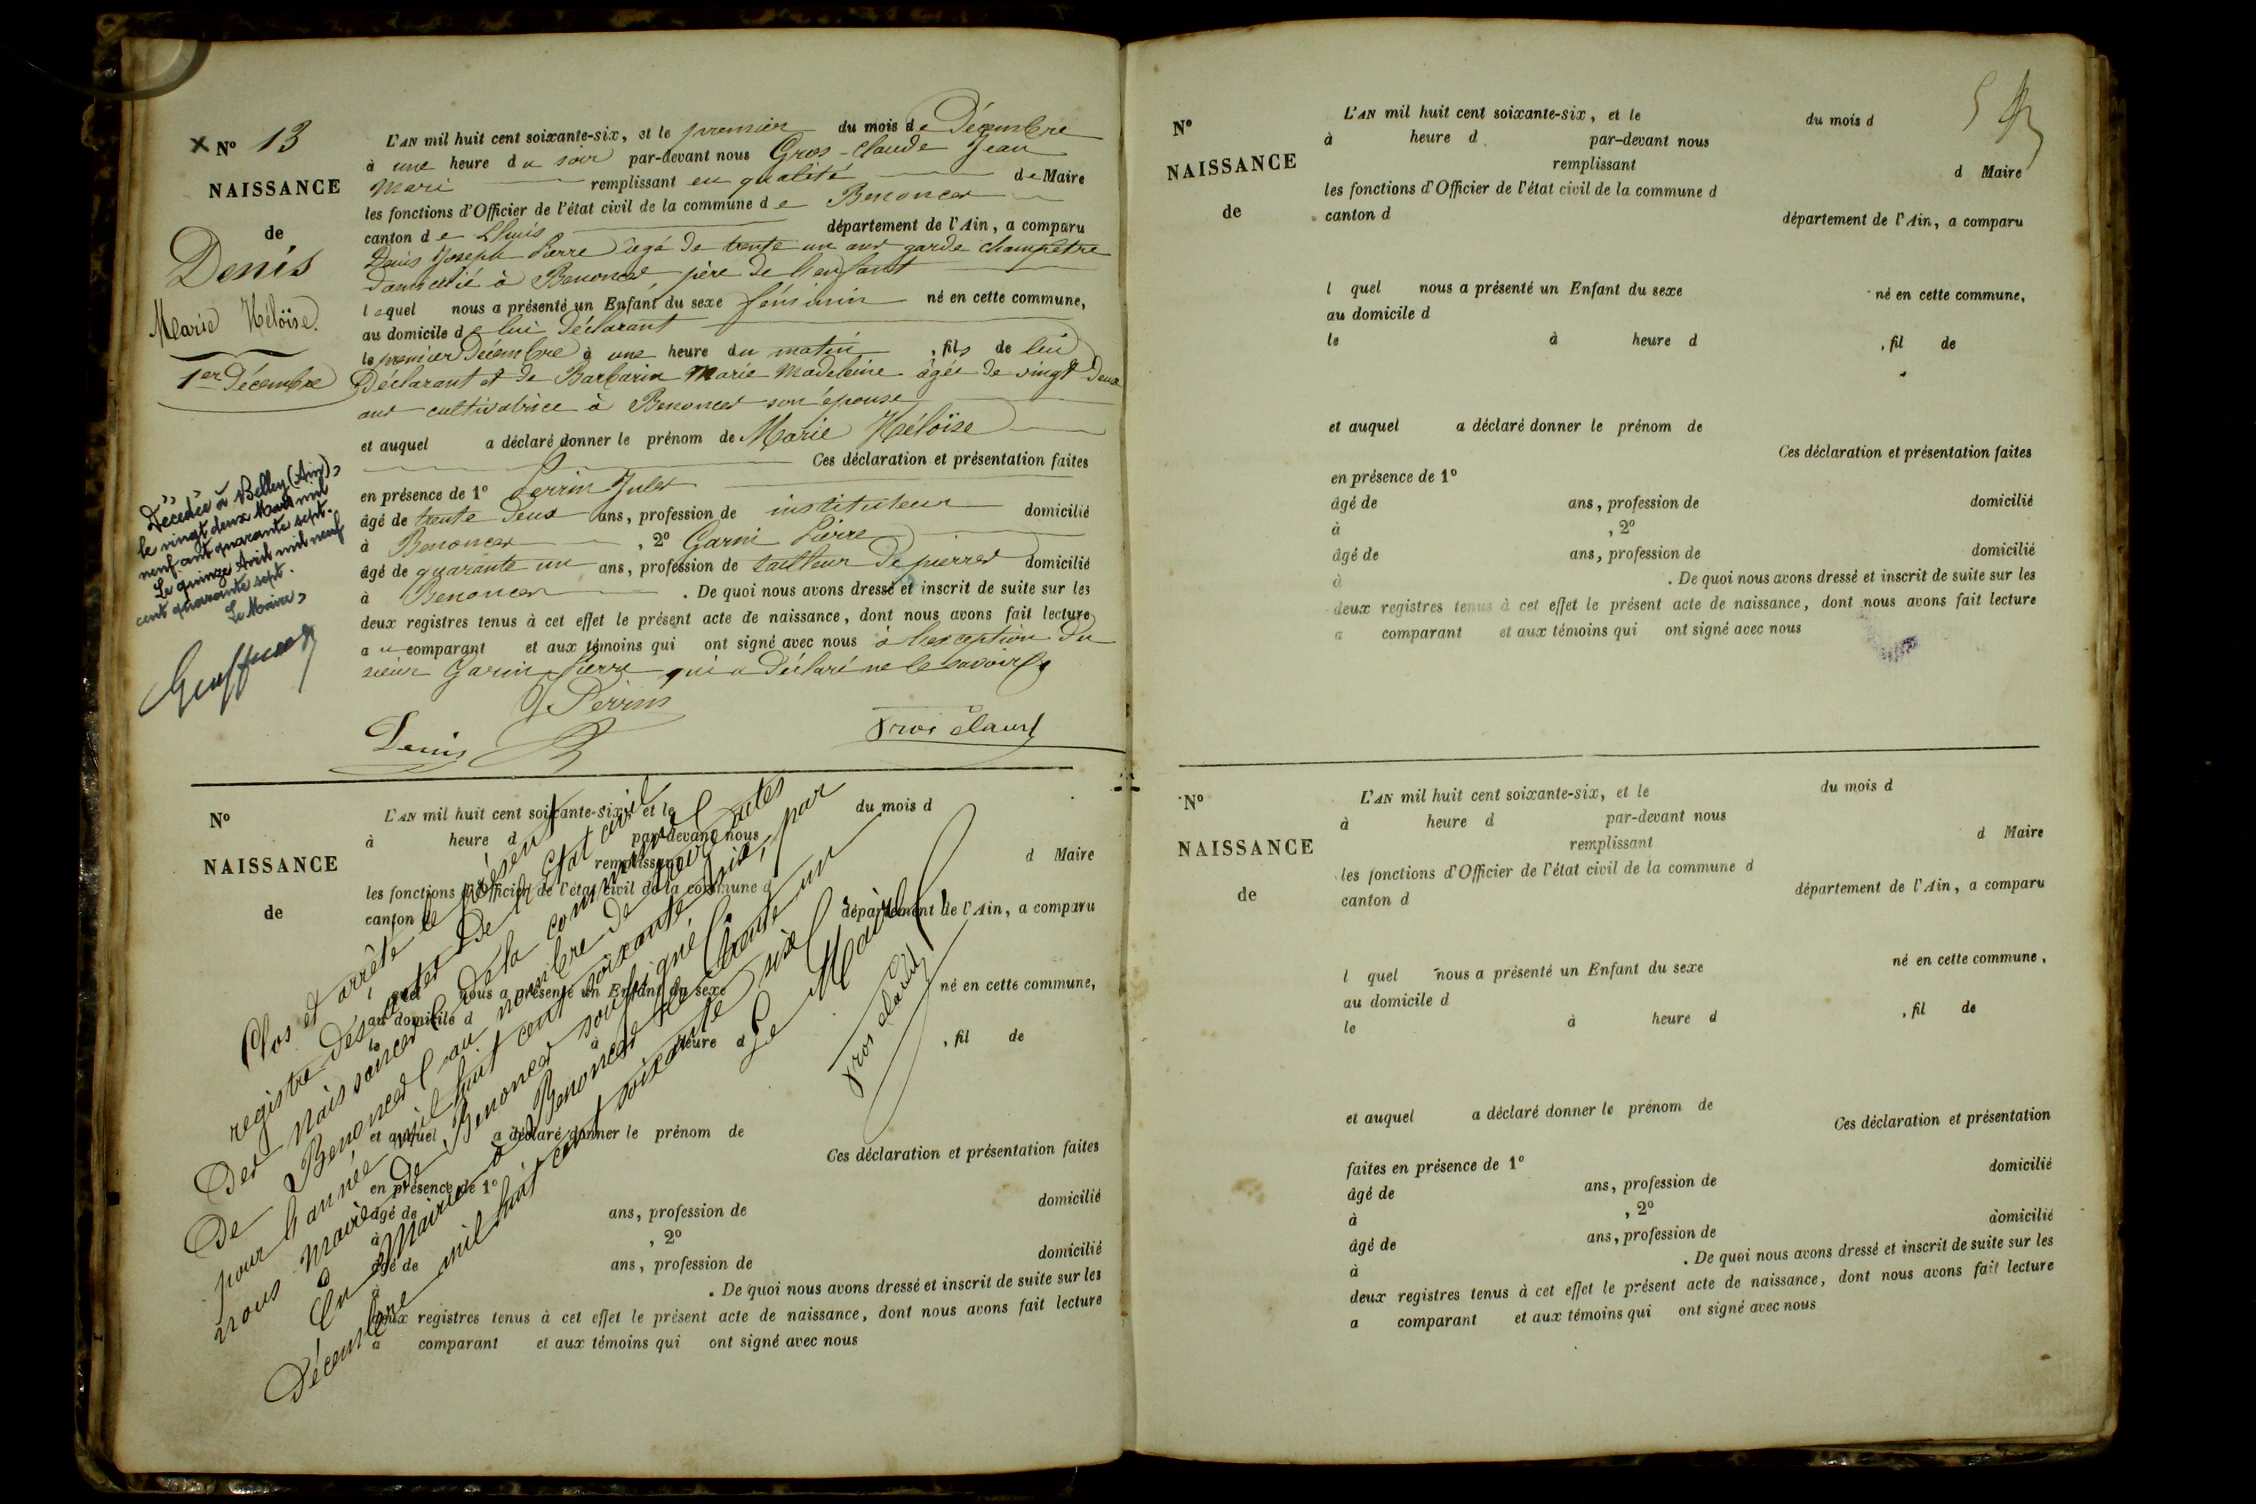 × N° 13
NAISSANCE
de
Denis
Marie Héloïse.
1er Décembre
Décédée à Belley (Ain),
le vingt deux Mars mil
neuf cent quarante sept.
Le quinze Avril mil neuf
cent quarante sept.
Le Maire,
L'AN mil huit cent soixante-six, et le premier du mois de Décembre
à une heure du soir par-devant nous Gros-Claude Jean
Marie remplissant en qualité de Maire
les fonctions d'Officier de l'état civil de la commune de Benonces
canton de Lhuis département de l'Ain, a comparu
Denis Joseph Pierre âgé de trente un ans garde champêtre
domicilié à Benonces père de l'enfant
lequel nous a présenté un Enfant du sexe féminin né en cette commune,
au domicile de lui déclarant
le premier Décembre à une heure du matin, fils de lui
Déclarant et de Barbarin Marie Madeleine âgée de vingt deux
ans cultivatrice à Benonces son épouse
et auquel a déclaré donner le prénom de Marie Héloïse
Ces déclaration et présentation faites
en présence de 1° Perrin Jules
âgé de trente deux ans, profession de instituteur domicilié
à Benonces, 2° Garin Pierre
âgé de quarante un ans, profession de tailleur de pierres domicilié
à Benonces. De quoi nous avons dressé et inscrit de suite sur les
deux registres tenus à cet effet le présent acte de naissance, dont nous avons fait lecture
au comparant et aux témoins qui ont signé avec nous à l'exception du
sieur Garin Pierre qui a déclaré ne le savoir
J Perrin
Denis
Gros Claude
N°
NAISSANCE
de
L'AN mil huit cent soixante-six, et le du mois d
à heure d par-devant nous
remplissant d Maire
les fonctions d'Officier de l'état civil de la commune d
canton d département de l'Ain, a comparu
l quel nous a présenté un Enfant du sexe né en cette commune,
au domicile d
le à heure d , fil de
et auquel a déclaré donner le prénom de
Ces déclaration et présentation faites
en présence de 1°
âgé de ans, profession de domicilié
à , 2°
âgé de ans, profession de domicilié
à . De quoi nous avons dressé et inscrit de suite sur les
deux registres tenus à cet effet le présent acte de naissance, dont nous avons fait lecture
a comparant et aux témoins qui ont signé avec nous
Clos et arrêté le présent
registre des actes de l'Etat civil
des naissances de la commune
De Benonces au nombre de treize actes
pour l'année mil huit cent soixante six, par
nous Maire de Benonces soussigné
En Mairie à Benonces le trente un
Décembre mil huit cent soixante six
Le Maire,
Gros Claude
N°
NAISSANCE
de
L'AN mil huit cent soixante-six, et le du mois d
à heure d par-devant nous
remplissant d Maire
les fonctions d'Officier de l'état civil de la commune d
canton d département de l'Ain, a comparu
l quel nous a présenté un Enfant du sexe né en cette commune,
au domicile d
le à heure d , fil de
et auquel a déclaré donner le prénom de
Ces déclaration et présentation faites
en présence de 1°
âgé de ans, profession de domicilié
à , 2°
âgé de ans, profession de domicilié
à . De quoi nous avons dressé et inscrit de suite sur les
deux registres tenus à cet effet le présent acte de naissance, dont nous avons fait lecture
a comparant et aux témoins qui ont signé avec nous
N°
NAISSANCE
de
L'AN mil huit cent soixante-six, et le du mois d
à heure d par-devant nous
remplissant d Maire
les fonctions d'Officier de l'état civil de la commune d
canton d département de l'Ain, a comparu
l quel nous a présenté un Enfant du sexe né en cette commune,
au domicile d
le à heure d , fil de
et auquel a déclaré donner le prénom de
Ces déclaration et présentation
faites en présence de 1° domicilié
âgé de ans, profession de
à , 2°
âgé de ans, profession de domicilié
à . De quoi nous avons dressé et inscrit de suite sur les
deux registres tenus à cet effet le présent acte de naissance, dont nous avons fait lecture
a comparant et aux témoins qui ont signé avec nous